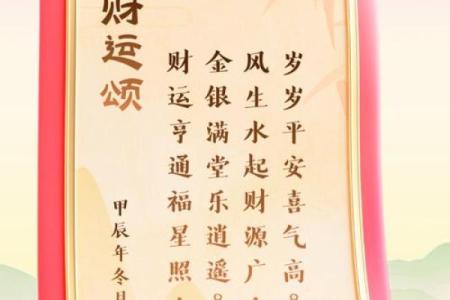 财运颂
财运亨通福星照，
金银满堂乐逍遥。
风生水起财源广，
岁岁平安喜气高。
甲辰年冬